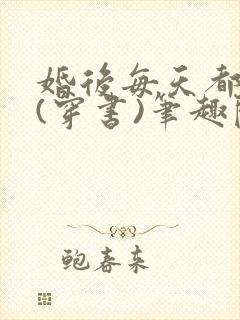 婚後每天都
(穿書)筆趣
鲍春来